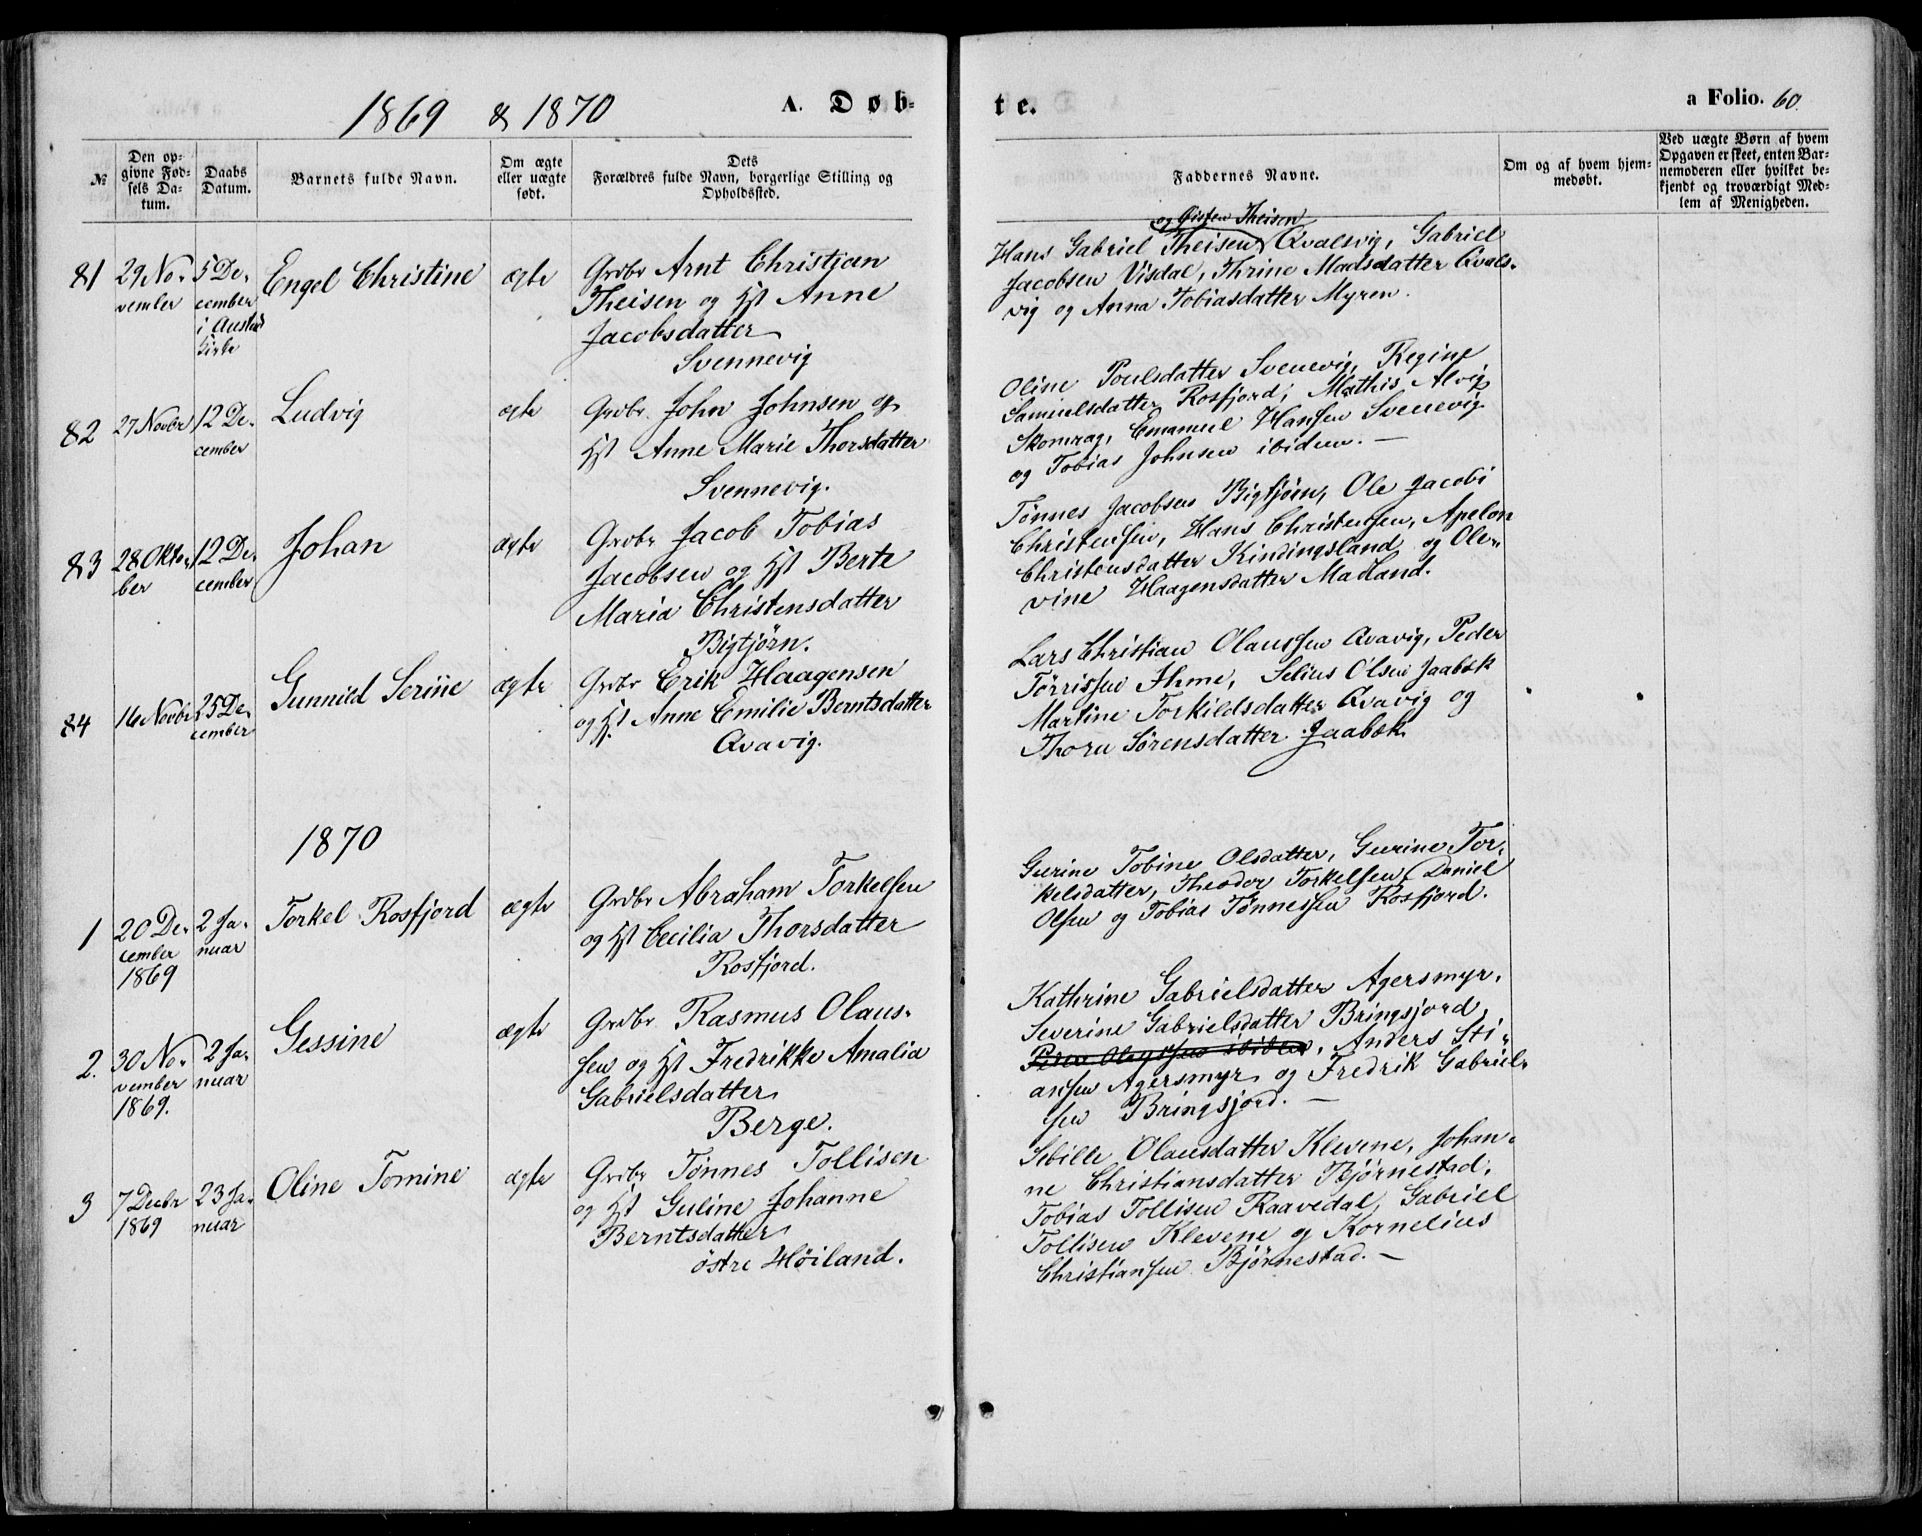 1869 & 1870
A. Døb-
te.
a Folio. 60.
№
Den op-
givne Fød-
sels Da-
tum.
Daabs
Datum.
Barnets fulde Navn.
Om ægte
eller uægte
født.
Dets
Forældres fulde Navn, borgerlige Stilling og
Opholdssted.
Faddernes Navne.
Om og af hvem hjem-
medøbt.
Ved uægte Børn af hvem
Opgaven er skeet, enten Bar-
nemoderen eller hvilket be-
kjendt og troværdigt Med-
lem af Menigheden.
81
29 No-
vember
5 De-
cember
i Austad
Kirke
Engel Christine
ægte
Grdbr Arnt Christian
Theisen og Hst Anne
Jacobsdatter
Svennevig
og Theisen
Hans Gabriel Theisen Qvalsvig, Gabriel
Jacobsen Visdal, Thrine Madsdatter Qvals-
vig og Anna Tobiasdatter Myren.
82
27 Novbr
12 De-
cember
Ludvig
ægte
Grdbr. John Johnsen og
Hst Anne Marie Thorsdatter
Svennevig.
Oline Poulsdatter Svenevig, Regine
Samuelsdatter Rosfjord, Mathis Alvig
Skomrag, Emanuel Hansen Svenevig
og Tobias Johnsen ibidem. —
83
28 Okto-
ber
12 De-
cember
Johan
ægte
Grdbr Jacob Tobias
Jacobsen og Hst Berte
Maria Christensdatter
Bigtjörn.
Tönnes Jacobsen Bigtjörn, Ole Jacobi
Christensen, Hans Christensen, Apelon
Christensdatter Kindingsland og Ole-
vine Haagensdatter Madland.
84
16 Novbr
25 De-
cember
Gunnild Serine
ægte
Grdbr Erik Haagensen
og Hst. Anne Emilie Berntsdatter
Qvavig.
Lars Christian Olaussen Qvavig, Peder
Tørrissen Ihme, Selius Olsen Jaabæk
Martine Torkildsdatter Qvavig og
Thora Sörensdatter Jaabæk
1870
1
20 De-
cember
1869
2 Ja-
nuar
Torkel Rosfjord
ægte
Grdbr Abraham Torkelsen
og Hst Cecilia Thorsdatter
Rosfjord.
Gurine Tobine Olsdatter, Gurine Tor-
kelsdatter, Theodor Torkelsen, Daniel
Olsen og Tobias Tønnessen Rosfjord.
2.
30 No-
vember
1869.
2 Ja-
nuar
Gessine
ægte
Grdbr. Rasmus Olaus-
sen og Hst Fredrikke Amalia
Gabrielsdatter
Berge.
Kathrine Gabrielsdatter Agersmyr,
Severine Gabrielsdatter Bringsjord,
ibidem, Anders Sti-
ansen Agersmyr og Fredrik Gabriel-
sen Bringsjord. —
3
7 Decbr
1869
23 Ja-
nuar
Oline Tomine
ægte
Grdbr Tönnes Tollisen
og Hst Guline Johanne
Berntsdatter
östre Höiland.
Sibille Olausdatter Klevene, Johan-
ne Christiansdatter Bjørnestad,
Tobias Tollisen Raavedal, Gabriel
Tollisen Klevene og Kornelius
Christiansen Bjørnestad. —